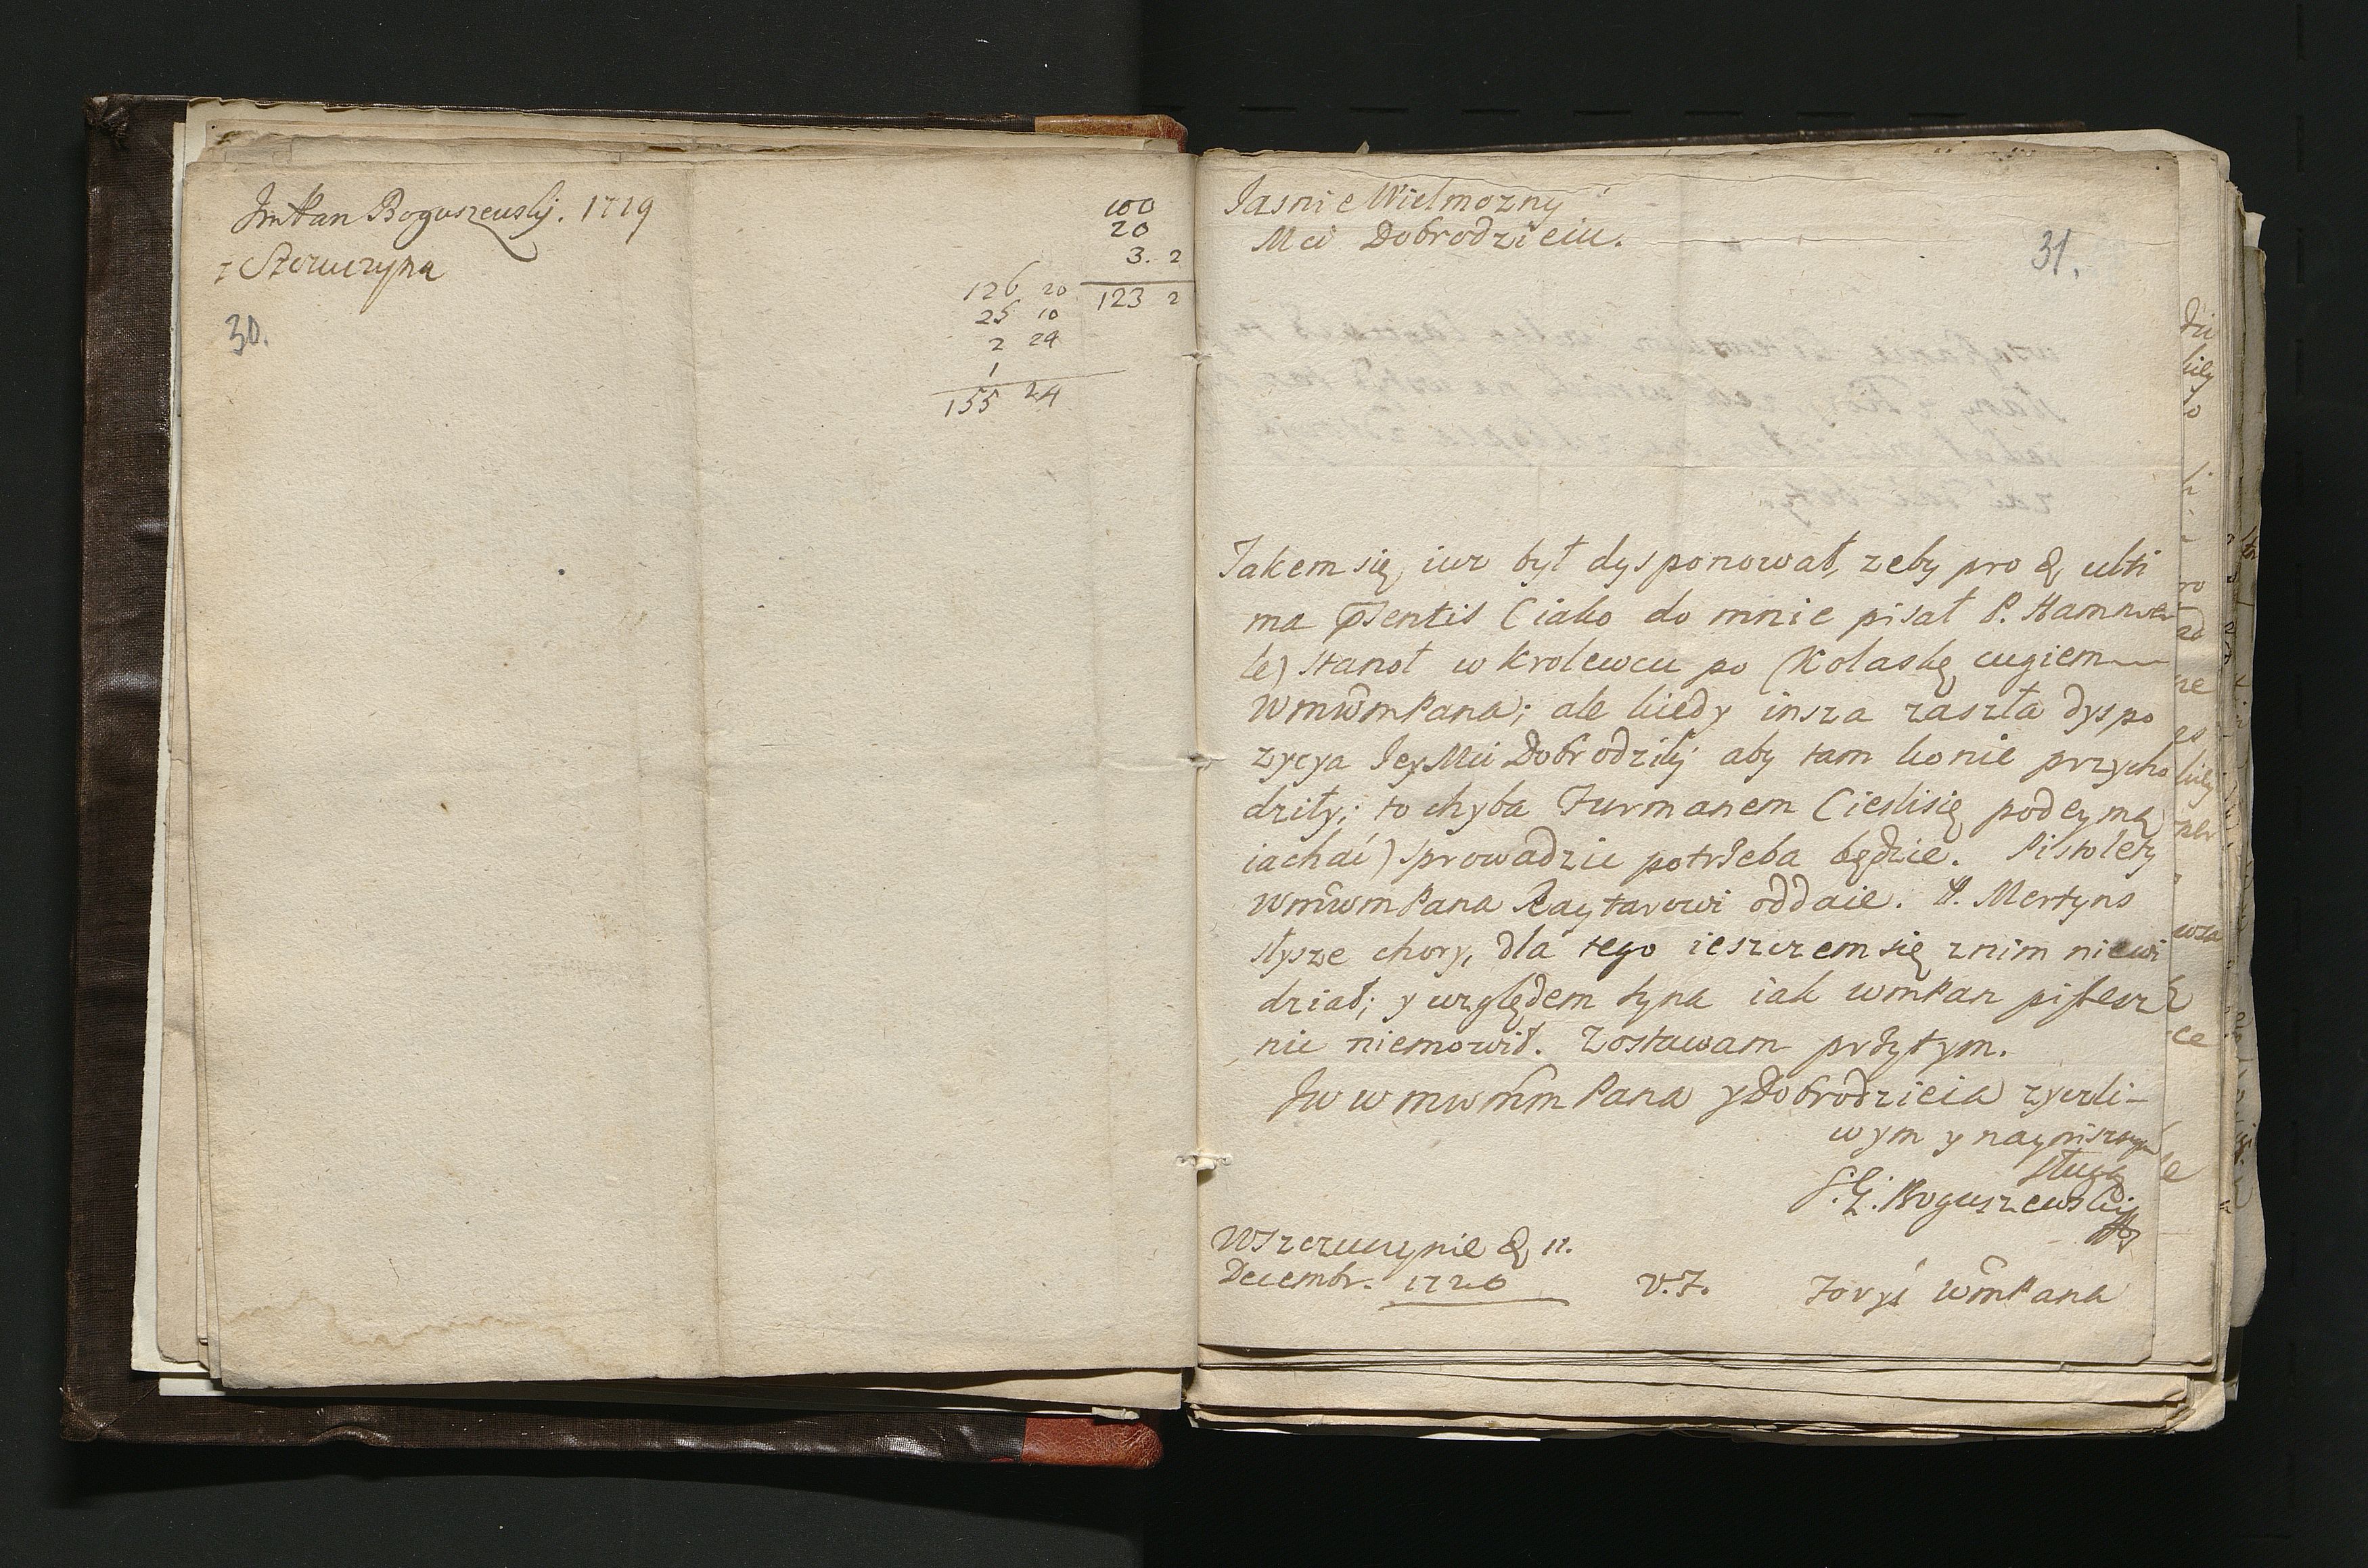 JmPan Boguszewskj. 1719
z Szczuczyna
30.
100
20
3. 2
123 2
126 20
25 10
2 24
1
155 24
Jasnie Wielmozny
Mci Dobrodzieiu.
31.
Jakem się iuz był dysponował, zeby pro d. ulti
ma psentis (iako do mnie pisał P. Hamner
le) stanoł w Krolewcu po Kolaskę cugiem
WmwmPana; ale kiedy insza zaszła dyspo
zycya JeyMci Dobrodziky aby tam konie przycho
dziły; to chyba Furmanem (ieslisię podeymą
iachać) sprowadzic potrzeba będzie. Pistolety
WmwmPana Raytarowi oddaie. P. Mertyns
słysze chory, dla tego ieszczemsię znim niewi
dział; y względem tyna iak wmPan pisesz
nic niemowił. Zostawam przytym.
Jw wmwmm Pana y Dobrodzieia zyczli-
wym y nayniszszym
sługą
S. G. Boguszewskij
W Szczuczynie d. 11.
Decembr. 1720
V. F.
Foryś wmPana